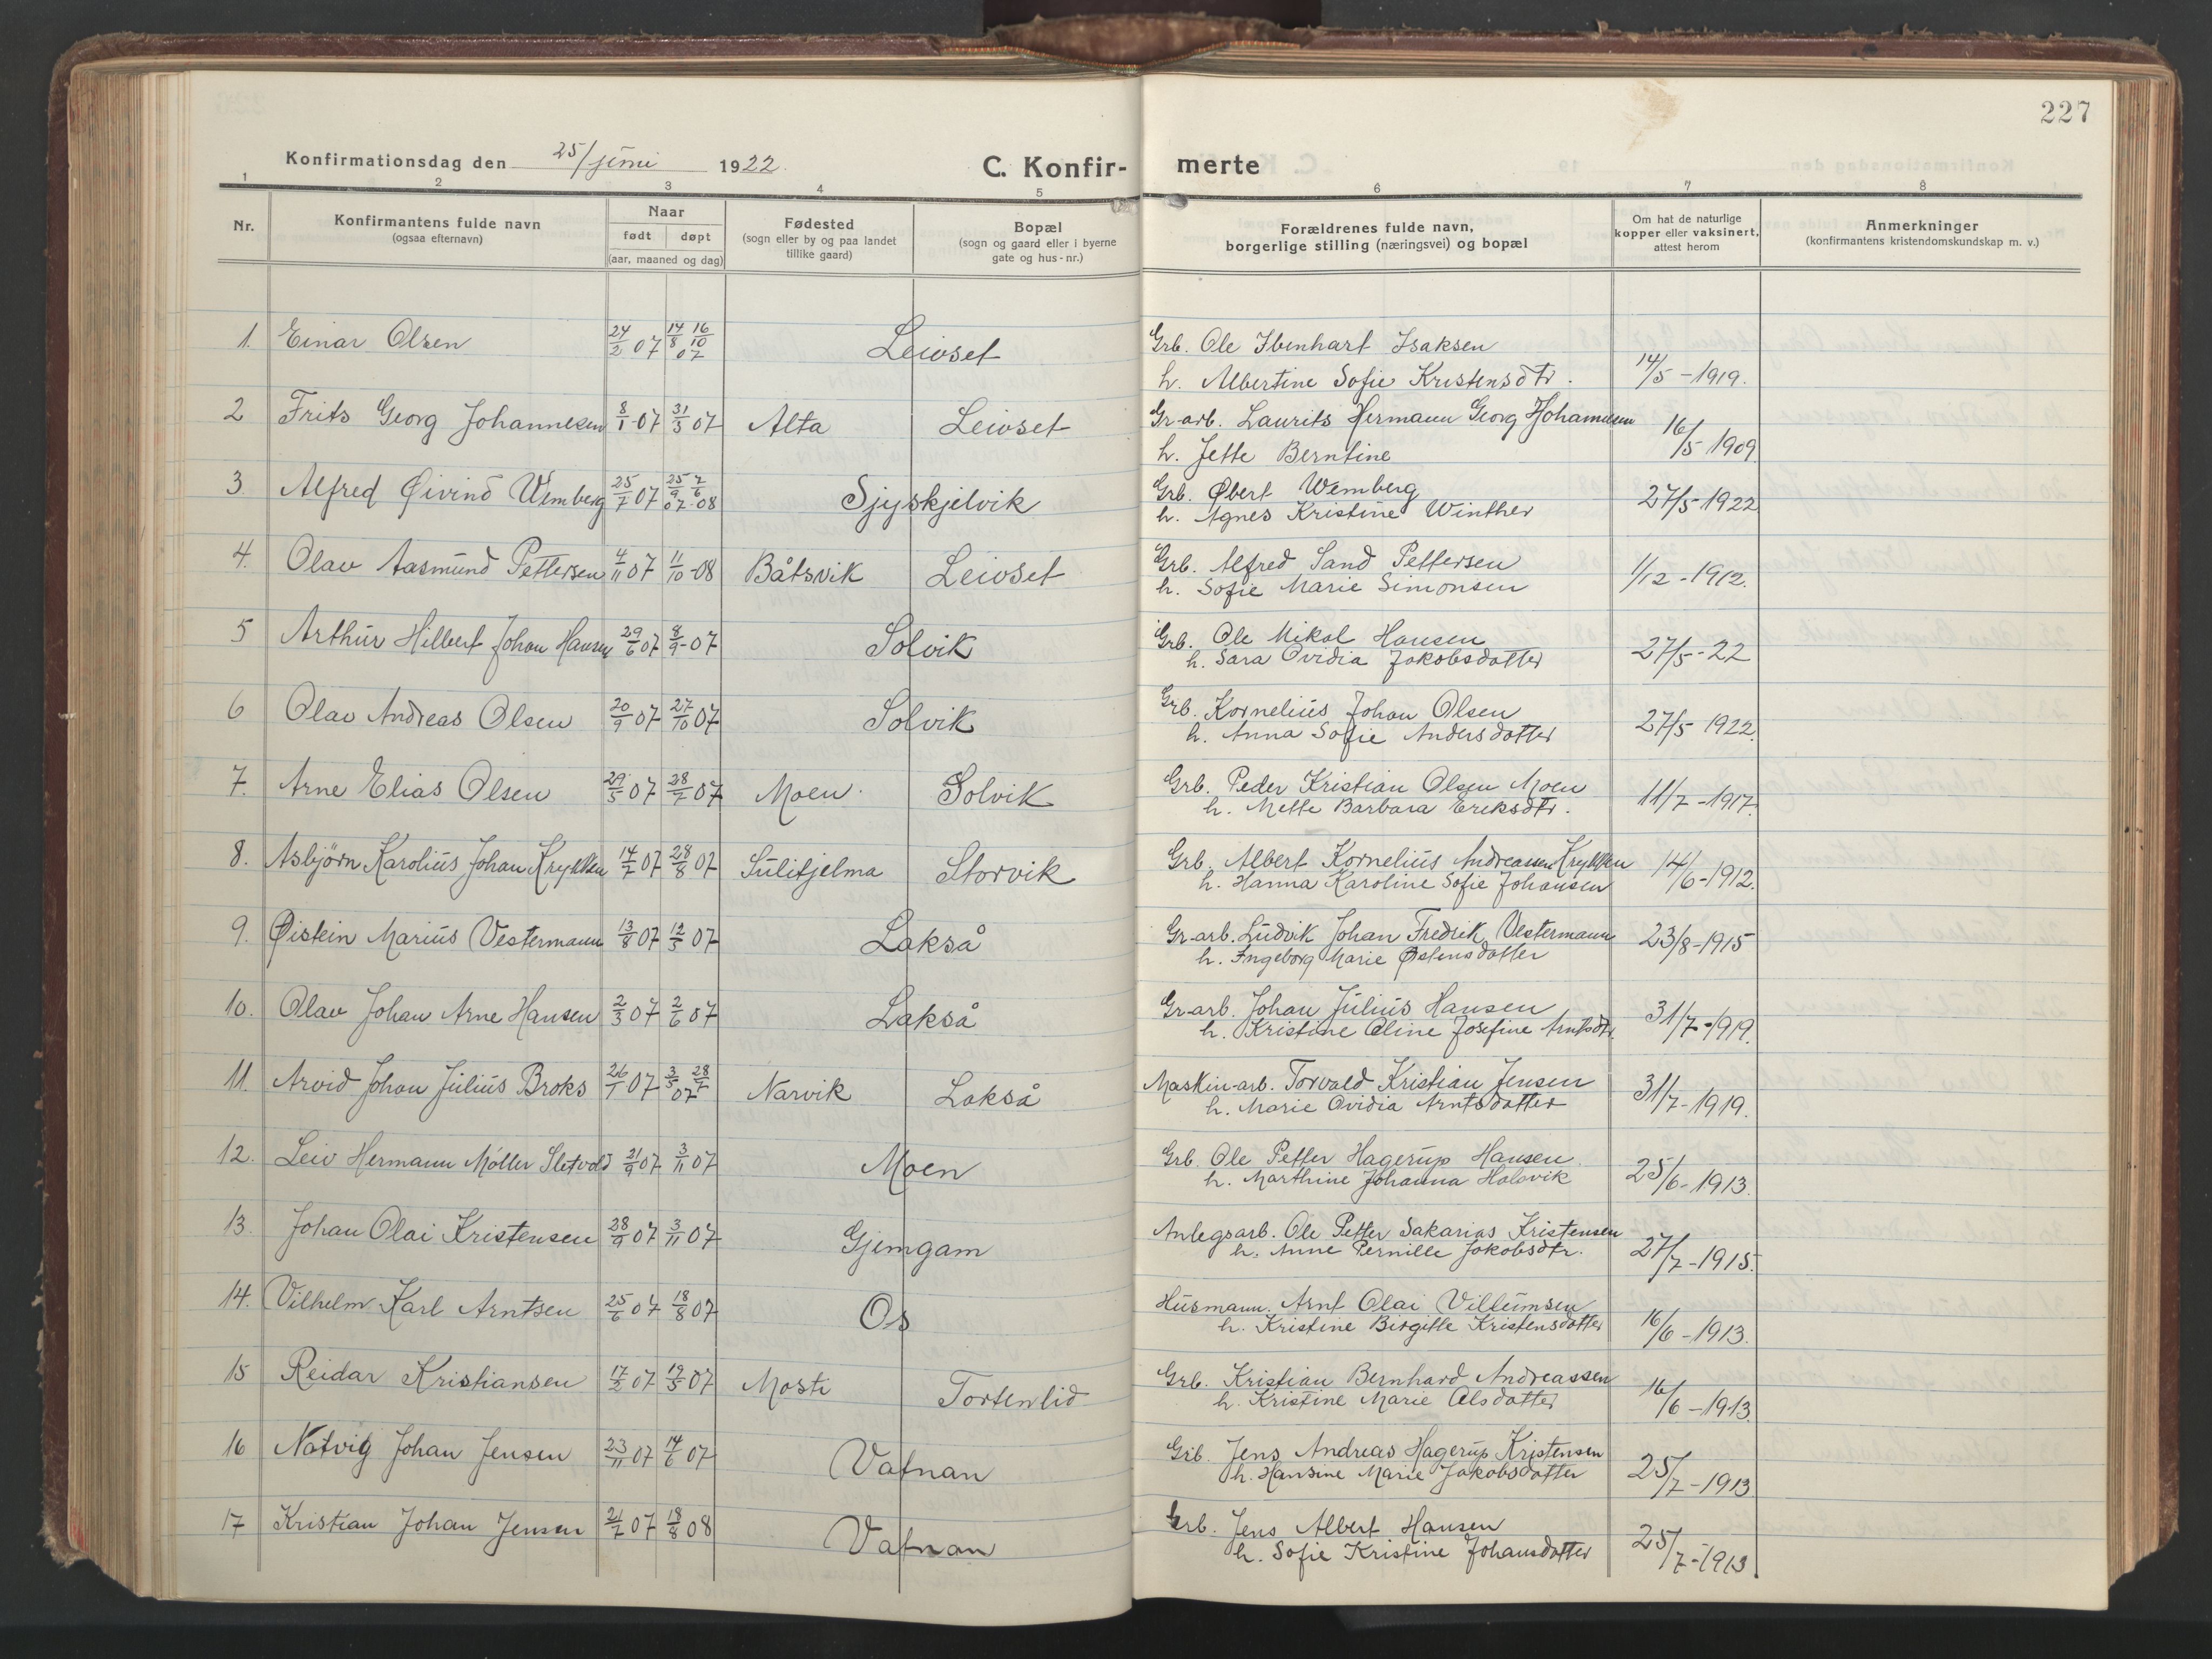 227
Konfirmationsdag den 25/juni 1922. C. Konfir- merte
1 2 3 4 5 6 7 8
Nr. Konfirmantens fulde navn (ogsaa efternavn) Naar født døpt (aar, maaned og dag) Fødested (sogn eller by og paa landet tillike gaard) Bopæl (sogn og gaard eller i byerne gate og hus-nr.) Forældrenes fulde navn, borgerlige stilling (næringsvei) og bopæl Om hat de naturlige kopper eller vaksinert, attest herom Anmerkninger (konfirmantens kristendomskundskap m. v.)
1. Einar Olsen 24/2 07 14/8 16/10 07 Leivset Grb. Ole Ibenhart Isaksen
h. Albertine Sofie Kristensdtr. 14/5-1919.
2 Frits Georg Johannesen 8/1-07 31/3 07 Alta Leivset Gr-arb. Laurits Hermann Georg Johannesen
h. Jette Berntine 16/5 1909
3. Alfred Øivind Wemberg 25/7 07 25/9 07 7/6 08 Sjyskjelvik Grb. Øbert Wemberg
h. Agnes Kristine Winther 27/5-1922
4. Olav Aasmund Pettersen 4/11 07 11/10-08 Båtsvik Leivset Grb. Alfred Sand Pettersen
h. Sofie Marie Simonsen 1/12-1912.
5 Arthur Hilbert Johan Hansen 29/6 07 8/9-07 Solvik Grb. Ole Mikal Hansen
h. Sara Ovidia Jakobsdatter 27/5-22
6 Olav Andreas Olsen 20/9 07 27/10 07 Solvik Grb. Kornelius Johan Olsen
h. Anna Sofie Andersdatter 27/5 1922.
7. Arne Elias Olsen 29/5 07 28/7 07 Moen Solvik Grb. Peder Kristian Olsen Moen
h. Mette Barbara Eriksdtr. 11/7-1917.
8. Asbjörn Karolius Johan 14/7 07 28/8 07 Sulitjelma Storvik Grb. Albert Kornelius Andreassen
h. Hanna Karoline Sofie Johansen 14/6-1912.
9. Øistein Marius Vestermann 13/8 07 12/5 07 Lakså Gr-arb. Ludvik Johan Fredrik Vestermann
h. Ingeborg Marie Østensdatter 23/8-1915
10. Olav Johan Arne Hansen 2/3 07 2/6 07 Lakså Gr-arb. Johan Julius Hansen
h. Kristine Oline Josefine Arntsdtr. 31/7-1919.
11. Arvid Johan Julius Broks 26/1 07 3/5 28/7 07 Narvik Lakså Maskin-arb. Torvald Kristian Jensen
h. Marie Ovidia Arntsdatter 31/7-1919.
12. Leiv Hermann Möller Sletvold 21/9 07 3/11 07 Moen Grb. Ole Petter Hagerup Hansen
h. Marthine Johanna Halsvik 25/6-1913.
13. Johan Olai Kristensen 28/9 07 3/11 07 Gjemgam Anlegsarb. Ole Petter Sakarias Kristensen
h. Anne Pernille Jakobsdtr. 27/7-1915.
14. Vilhelm Karl Arntsen 25/6 07 18/8 07 Os Husmann. Arnt Olai Villumsen
h. Kristine Birgitte Kristensdatter 16/6-1913.
15 Reidar Kristiansen 17/2 07 19/5 07 Mosti Tortenlid Grb. Kristian Bernhard Andreassen
h. Kristine Marie Olsdatter 16/6-1913.
16 Natvig Johan Jensen 23/11 07 14/6 07 Vatnan Grb. Jens Andreas Hagerup Kristensen
h. Hansine Marie Jakobsdatter 25/7-1913
17 Kristian Johan Jensen 21/7 07 18/8 08 Vatnan Grb. Jens Albert Hansen
h. Sofie Kristine Johansdatter 25/7-1913